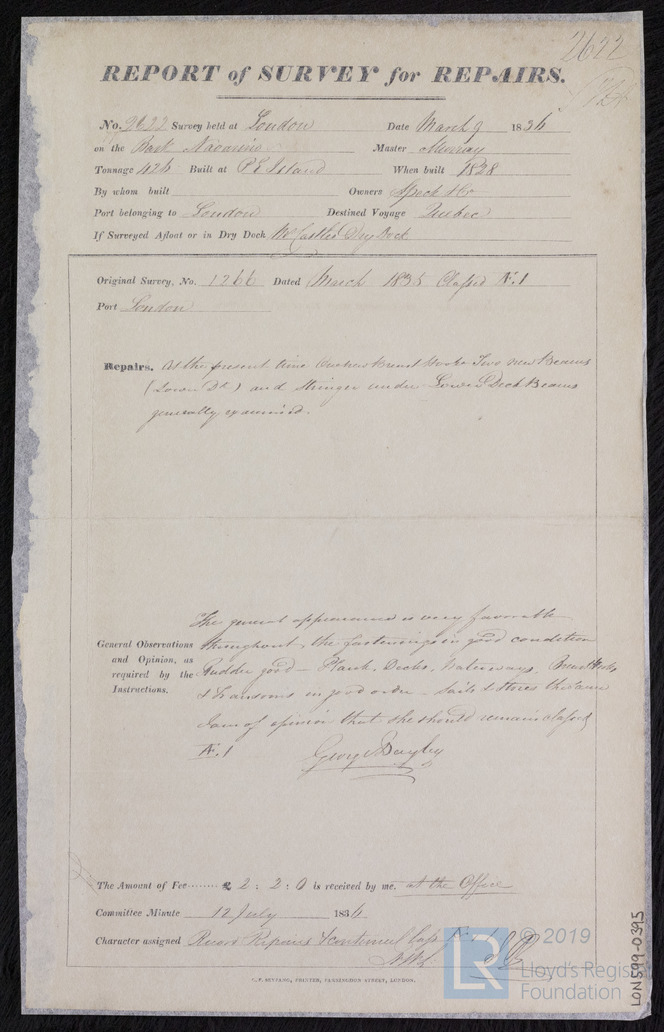 2622
REPORT of SURVEY for REPAIRS.
No. 2622 Survey held at London Date March 9 1836
on the Bark Navarino Master Murray
Tonnage 426 Built at P E Island When built 1828
By whom built Owners
Port belonging to London Destined Voyage Quebec
If Surveyed Afloat or in Dry Dock Dry Dock
Original Survey, No. 1266 Dated March 1835 Classed Æ.1
Port London
Repairs. At the present time Two new Beams
(Lower Dk) and Stringer under Lower Deck Beams
generally examined.
The general appearance is very favorable
General Observations and Opinion, as required by the Instructions.
throughout, the fastenings in good condition
Rudder good — Plank, Decks, Waterways, Breast Hooks
& Transoms in good order — Sails & Stores the same
I am of opinion that she should remain classed
Æ.1 George Bayley
The Amount of Fee ........ £ 2 : 2 : 0 is received by me, at the Office
Committee Minute 12 July 1836
Character assigned Repairs & continued
PRINTER, FARRINGDON STREET, LONDON.
© 2019
LR Lloyd's Register
Foundation
LON599-0395